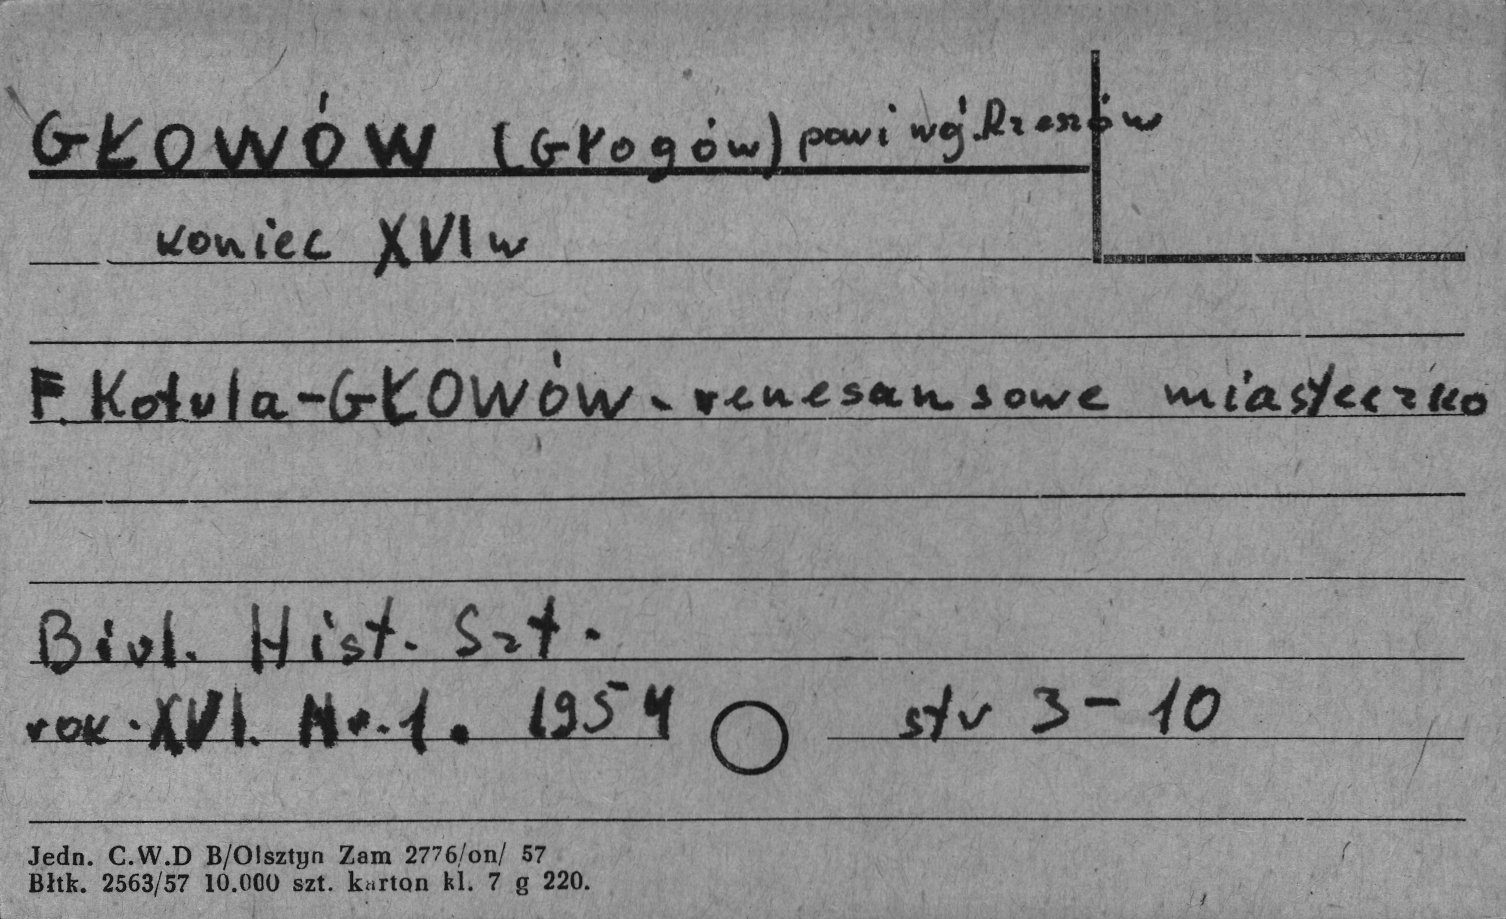 GŁOWÓW (GŁogów) pow i woj. Rzeszów
koniec XVI w
F. Kotula - GŁOWÓW - renesansowe miasteczko
Biul. Hist. Szt.
rok. XVI. Nr. 1. 1954 str 3-10
Jedn. C.W.D B/Olsztyn Zam 2776/on/ 57
Błtk. 2563/57 10.000 szt. karton kl. 7 g 220.